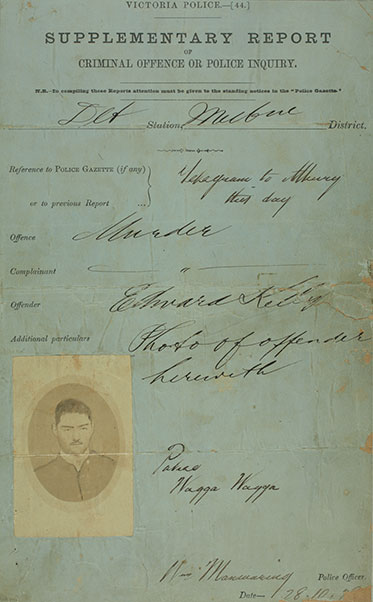 VICTORIA POLICE.—[44.]
SUPPLEMENTARY REPORT
OF
CRIMINAL OFFENCE OR POLICE INQUIRY.
N.B.—In compiling these Reports attention must be given to the standing notices in the "Police Gazette."
Det Station, Melbne District.
Reference to POLICE GAZETTE (if any)
or to previous Report ...
Telegram to Albury
this day
Offence Murder
Complainant "
Offender Edward Kelly
Additional particulars Photo of offender
herewith
Police
Wagga Wagga
Wm Manwaring Police Officer.
Date— 28.10.